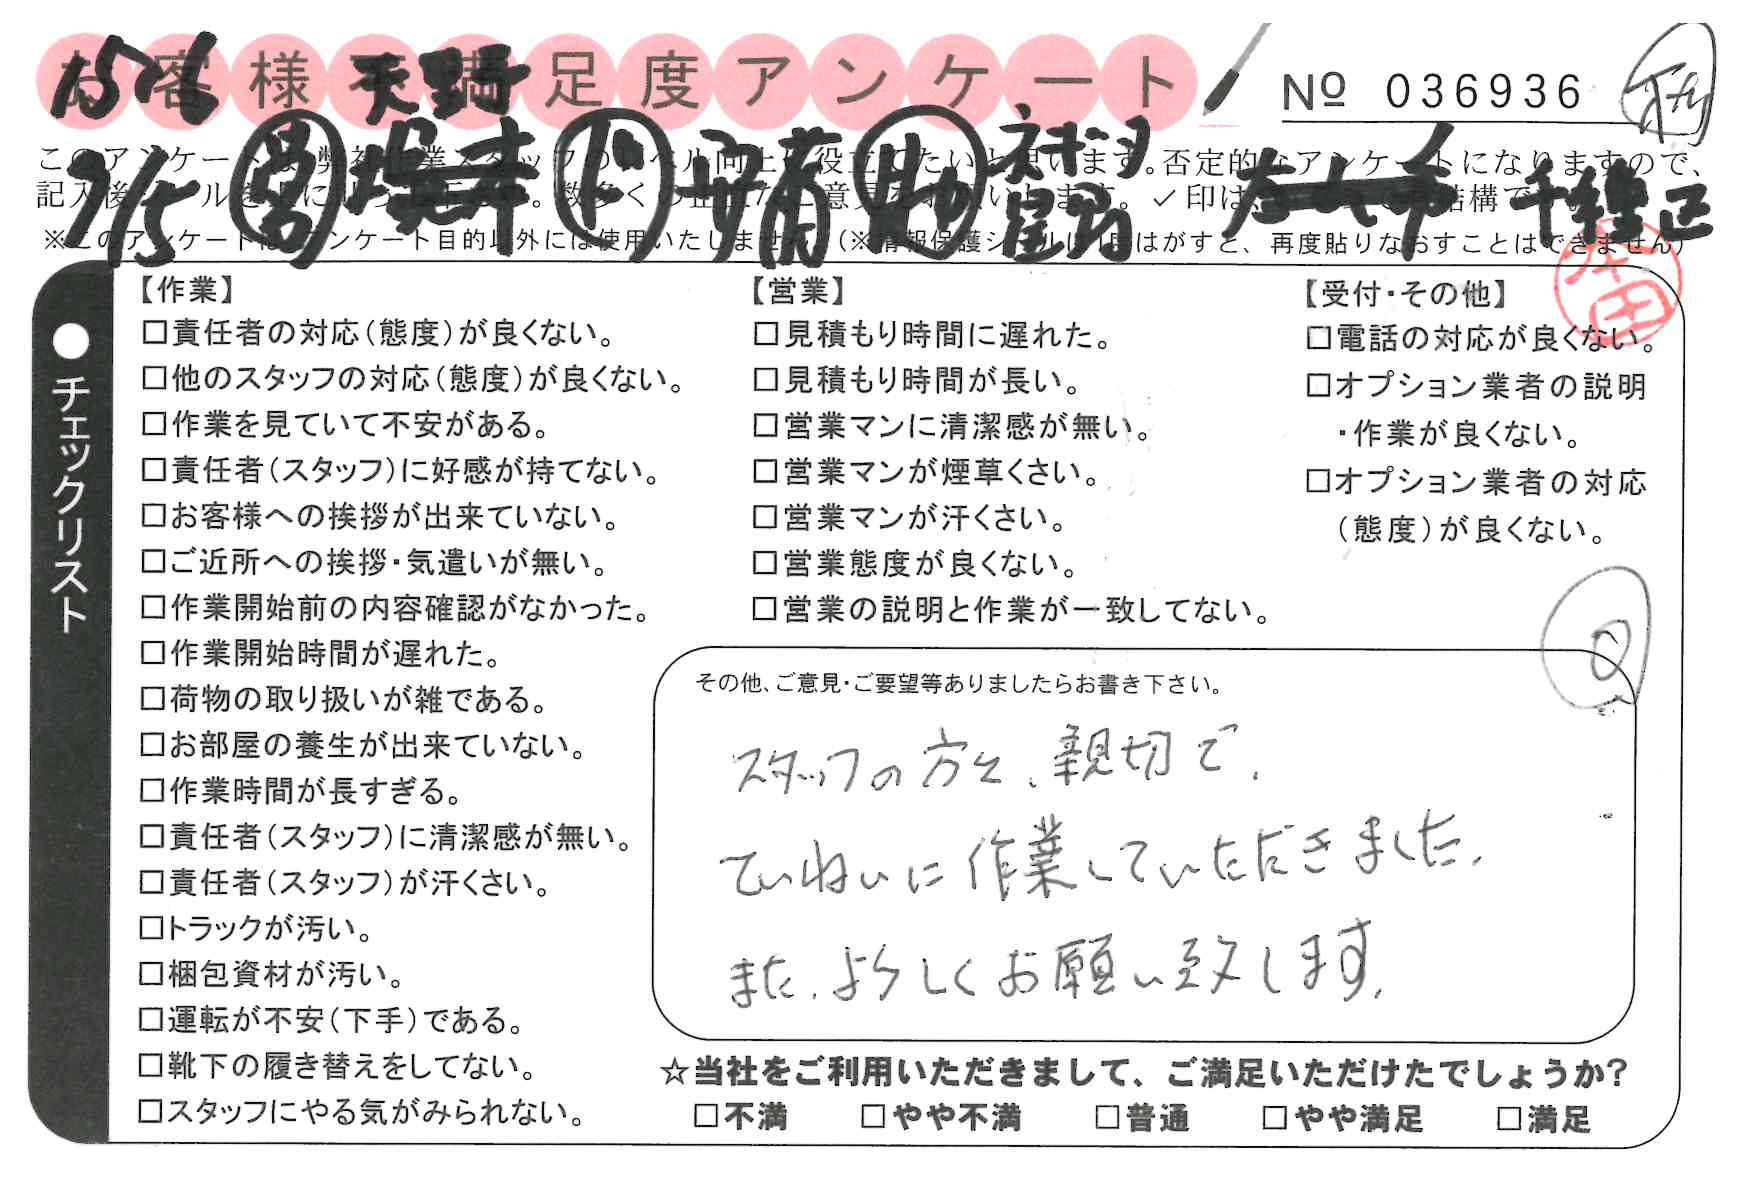 お客様不満足度アンケート
1576 天野
№ 036936
7/5
このアンケートは弊社作業スタッフのレベル向上に役立てたいと思います。否定的なアンケートになりますので、
記入後シールを 数多くの正直なご意見をお願いします。✓印は 結構です。
※このアンケートは、アンケート目的以外には使用いたしません。(※情報保護シールは1度はがすと、再度貼りなおすことはできません)
本田
●チェックリスト
【作業】
□責任者の対応(態度)が良くない。
□他のスタッフの対応(態度)が良くない。
□作業を見ていて不安がある。
□責任者(スタッフ)に好感が持てない。
□お客様への挨拶が出来ていない。
□ご近所への挨拶・気遣いが無い。
□作業開始前の内容確認がなかった。
□作業開始時間が遅れた。
□荷物の取り扱いが雑である。
□お部屋の養生が出来ていない。
□作業時間が長すぎる。
□責任者(スタッフ)に清潔感が無い。
□責任者(スタッフ)が汗くさい。
□トラックが汚い。
□梱包資材が汚い。
□運転が不安(下手)である。
□靴下の履き替えをしてない。
□スタッフにやる気がみられない。
【営業】
□見積もり時間に遅れた。
□見積もり時間が長い。
□営業マンに清潔感が無い。
□営業マンが煙草くさい。
□営業マンが汗くさい。
□営業態度が良くない。
□営業の説明と作業が一致してない。
【受付・その他】
□電話の対応が良くない。
□オプション業者の説明
・作業が良くない。
□オプション業者の対応
(態度)が良くない。
その他、ご意見・ご要望等ありましたらお書き下さい。
スタッフの方々、親切で、
ていねいに作業していただきました。
また、よろしくお願い致します。
☆当社をご利用いただきまして、ご満足いただけたでしょうか?
□不満 □やや不満 □普通 □やや満足 □満足